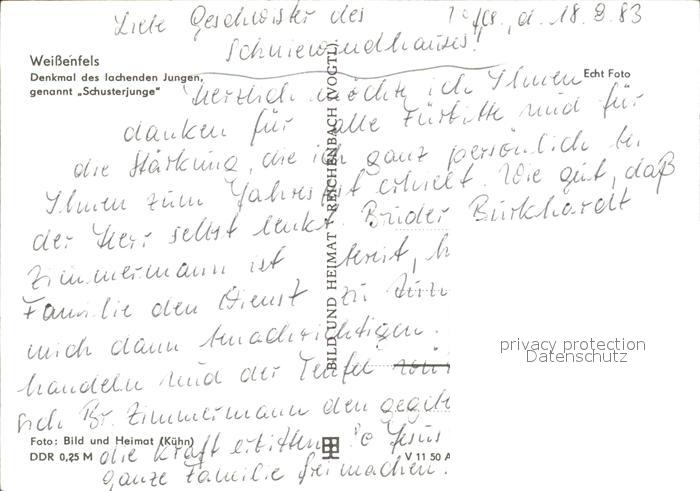 Liebe Geschwister des
d. 18.8.83
Schniewindhauses!
Weißenfels
Denkmal des lachenden Jungen,
genannt „Schusterjunge"
Echt Foto
Herzlich möchte ich Ihnen
danken für alle Fürbitte und für
die Stärkung, die ich ganz persönlich bei
Ihnen zum Jahresfest erhielt. Wie gut, daß
der Herr selbst lenkt. Bruder Burkhardt
Zimmermann ist bereit,
Familie den Dienst zu
mich dann benachrichtigen.
handeln und der Teufel
sich Br. Zimmermann den
die Kraft erbitten Jesus
ganze Familie frei machen.
BILD UND HEIMAT REICHENBACH (VOGTL)
Foto: Bild und Heimat (Kühn)
DDR 0,25 M
V 11 50 A
privacy protection
Datenschutz